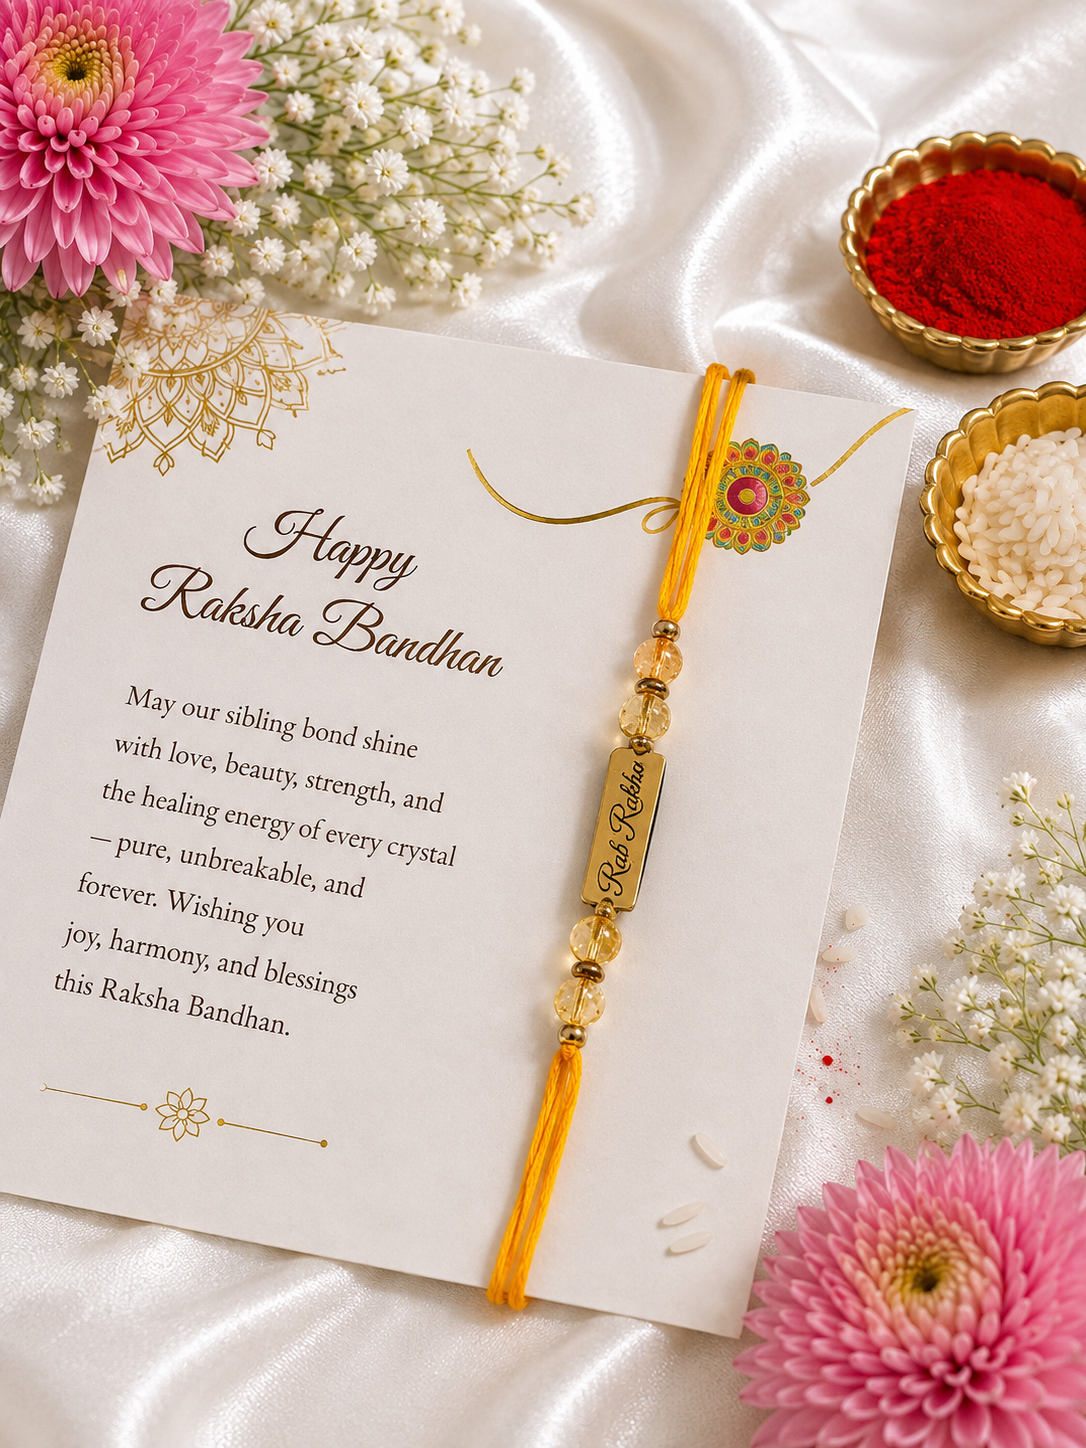 Happy
Raksha Bandhan
May our sibling bond shine
with love, beauty, strength, and
the healing energy of every crystal
— pure, unbreakable, and
forever. Wishing you
joy, harmony, and blessings
this Raksha Bandhan.
Rab Rakha